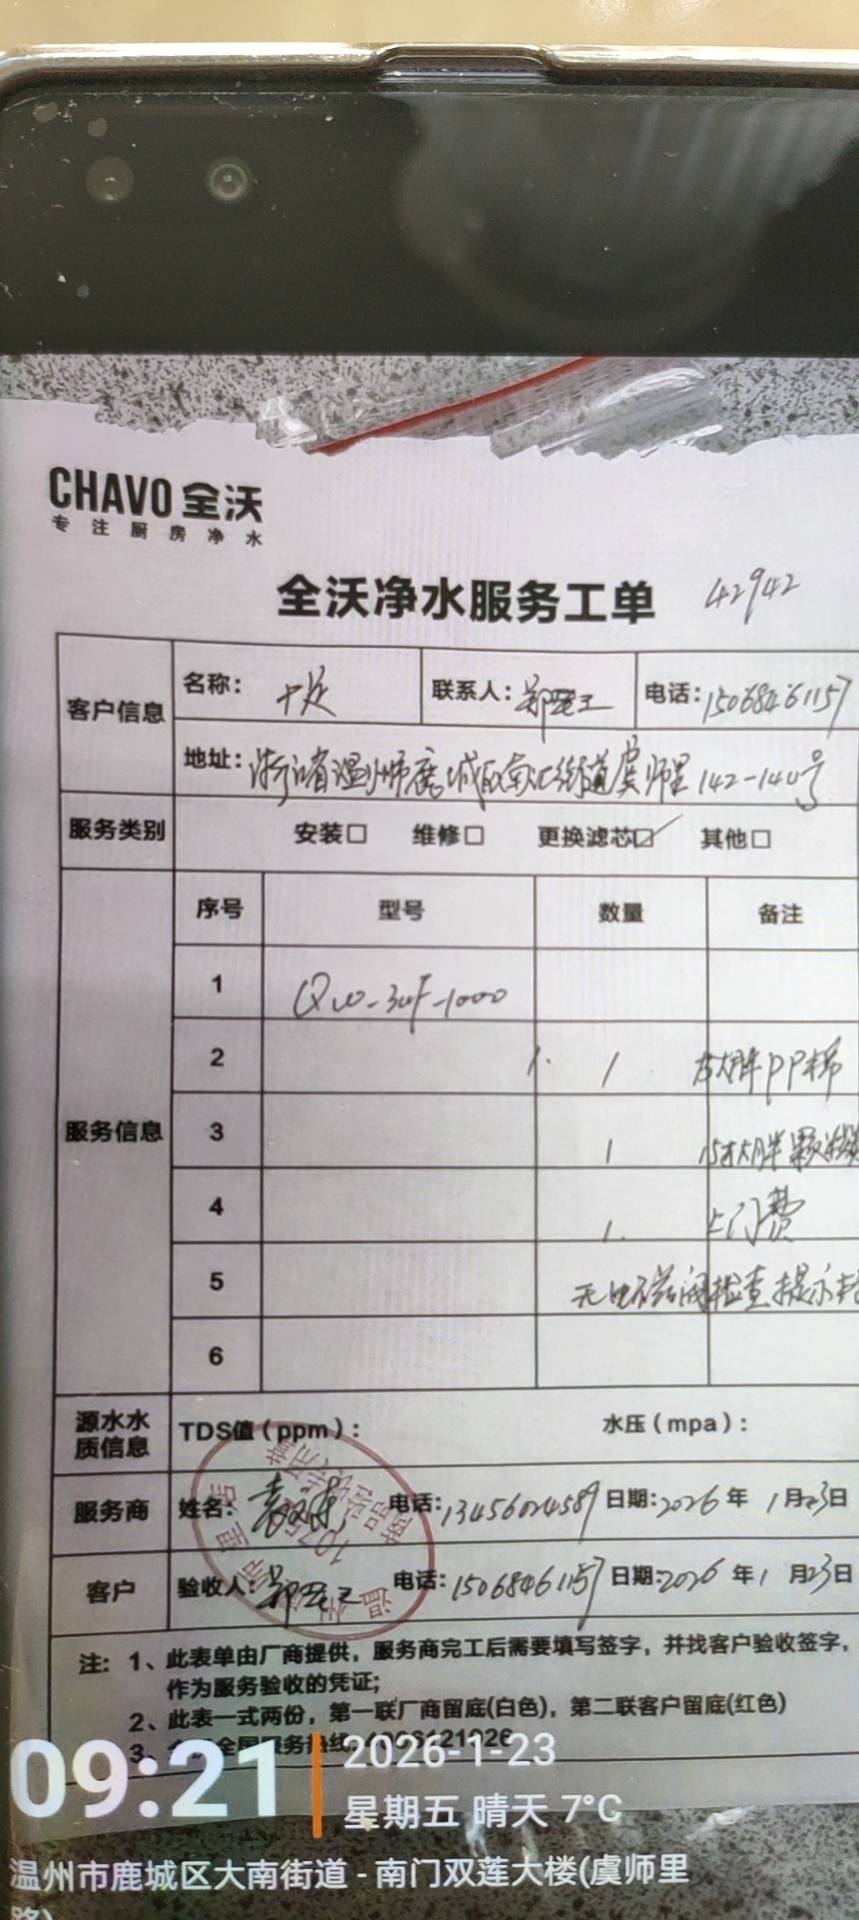 CHAVO 全沃
专注厨房净水
全沃净水服务工单 42942
客户信息
名称：十足 联系人： 电话：15068461157
地址：浙江省温州市鹿城区南汇街道虞师里142-140号
服务类别 安装□ 维修□ 更换滤芯☑ 其他□
服务信息
序号 型号 数量 备注
1 QW-3UF-1000
2 1. 1 PP棉
3 1 15寸大胖颗粒
4 1. 上门费
5 无电磁阀检查提示
6
源水水质信息 TDS值（ppm）： 水压（mpa）：
服务商 姓名： 电话：13456024589 日期：2026年1月23日
客户 验收人： 电话：15068461157 日期：2026年1月23日
注：1、此表单由厂商提供，服务商完工后需要填写签字，并找客户验收签字，
作为服务验收的凭证；
2、此表一式两份，第一联厂商留底(白色)，第二联客户留底(红色)
3、
09:21
2026-1-23
星期五 晴天 7°C
温州市鹿城区大南街道 - 南门双莲大楼(虞师里
路)